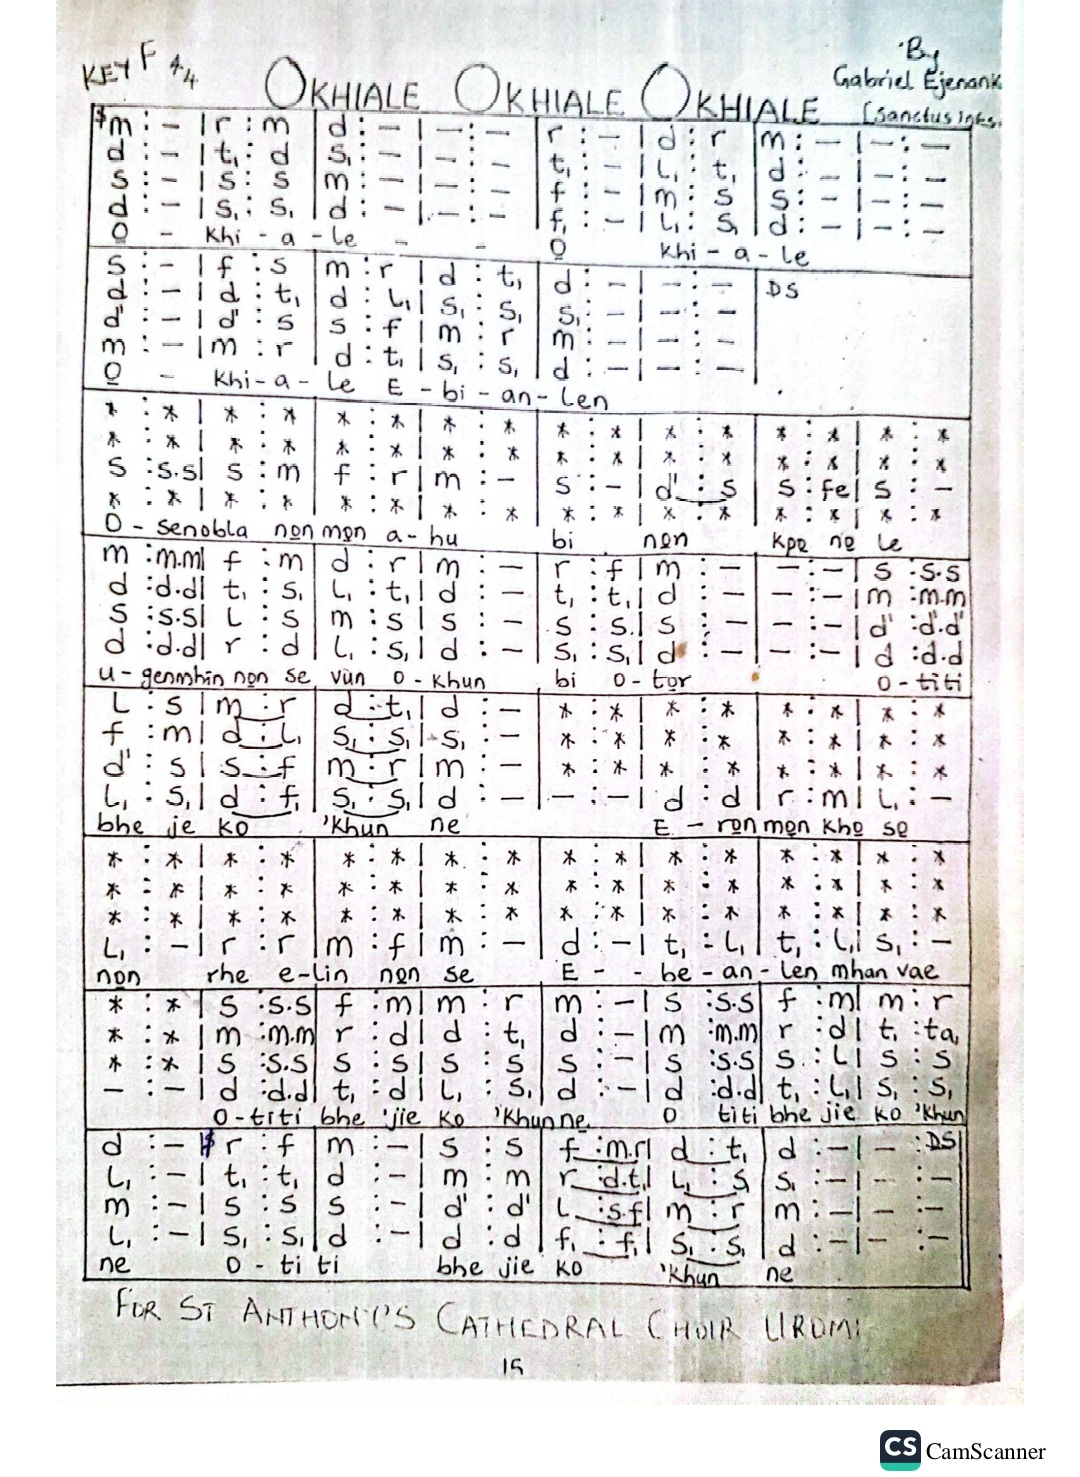 KEY F 4/4
OKHIALE OKHIALE OKHIALE
By
Gabriel Ejenank
$m : – | r : m | d : – | – : – | r : – | d : r | m : – | – : –
d : – | t₁ : d | s₁ : – | – : – | t₁ : – | l₁ : t₁ | d : – | – : –
s : – | s : s | m : – | – : – | f : – | m : s | s : – | – : –
d : – | s₁ : s₁ | d : – | – : – | f₁ : – | l₁ : s₁ | d : – | – : –
O - khi - a - le - - O khi - a - le
s : – | f : s | m : r | d : t₁ | d : – | – : – | DS
d : – | d : t₁ | d : l₁ | s₁ : s₁ | s₁ : – | – : –
d' : – | d' : s | s : f | m : r | m : – | – : –
m : – | m : r | d : t₁ | s₁ : s₁ | d : – | – : –
O - khi - a - le E - bi - an - len
* : * | * : * | * : * | * : * | * : * | * : * | * : * | * : *
* : * | * : * | * : * | * : * | * : * | * : * | * : * | * : *
s : s.s | s : m | f : r | m : – | s : – | d' : s | s : fe | s : –
* : * | * : * | * : * | * : * | * : * | * : * | * : * | * : *
O - senobla nọn mọn a - hu bi nọn kpọ nọ le
m : m.m | f : m | d : r | m : – | r : f | m : – | – : – | s : s.s
d : d.d | t₁ : s₁ | l₁ : t₁ | d : – | t₁ : t₁ | d : – | – : – | m : m.m
s : s.s | l : s | m : s | s : – | s : s | s : – | – : – | d' : d'.d'
d : d.d | r : d | l₁ : s₁ | d : – | s₁ : s₁ | d : – | – : – | d : d.d
u - genmhin nọn se vùn o - khun bi o - tọr o - titi
l : s | m : r | d : t₁ | d : – | * : * | * : * | * : * | * : *
f : m | d : l₁ | s₁ : s₁ | s₁ : – | * : * | * : * | * : * | * : *
d' : s | s : f | m : r | m : – | * : * | * : * | * : * | * : *
l₁ : s₁ | d : f₁ | s₁ : s₁ | d : – | – : – | d : d | r : m | l₁ : –
bhe je ko 'khun ne E - rọn mọn khọ sọ
* : * | * : * | * : * | * : * | * : * | * : * | * : * | * : *
* : * | * : * | * : * | * : * | * : * | * : * | * : * | * : *
* : * | * : * | * : * | * : * | * : * | * : * | * : * | * : *
l₁ : – | r : r | m : f | m : – | d : – | t₁ : l₁ | t₁ : l₁ | s₁ : –
nọn rhe e-lin nọn se E - - be - an - len mhan vae
* : * | s : s.s | f : m | m : r | m : – | s : s.s | f : m | m : r
* : * | m : m.m | r : d | d : t₁ | d : – | m : m.m | r : d | t₁ : ta₁
* : * | s : s.s | s : s | s : s | s : – | s : s.s | s : l | s : s
– : – | d : d.d | t₁ : d | l₁ : s₁ | d : – | d : d.d | t₁ : l₁ | s₁ : s₁
O - titi bhe 'jie ko 'khun ne O titi bhe jie ko 'khun
d : – | $ r : f | m : – | s : s | f : m.r | d : t₁ | d : – | – : DS
l₁ : – | t₁ : t₁ | d : – | m : m | r : d.t₁ | l₁ : s₁ | s₁ : – | – : –
m : – | s : s | s : – | d' : d' | l : s.f | m : r | m : – | – : –
l₁ : – | s₁ : s₁ | d : – | d : d | f₁ : f₁ | s₁ : s₁ | d : – | – : –
ne O - ti ti bhe jie ko 'khun ne
FOR ST ANTHONY'S CATHEDRAL CHOIR UROMI
CS CamScanner